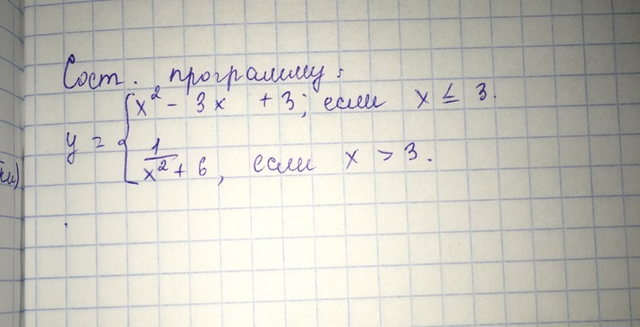 Сост. программу:
y = { x² - 3x + 3; если x ≤ 3.
1/x² + 6, если x > 3.